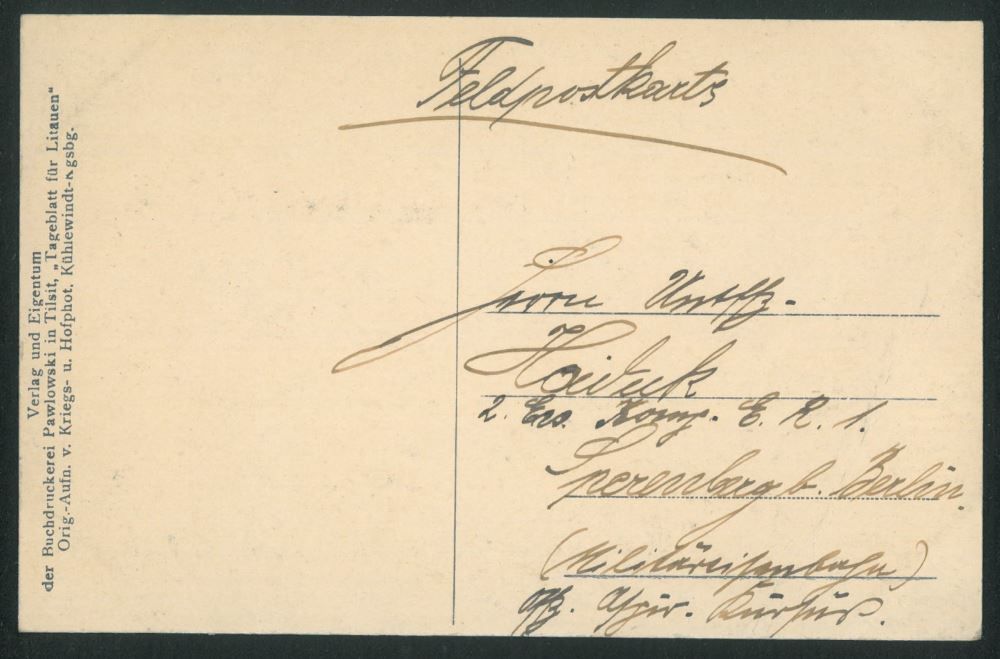 Verlag und Eigentum
der Buchdruckerei Pawlowski in Tilsit, „Tageblatt für Litauen“
Orig.-Aufn. v. Kriegs- u. Hofphot. Kühlewindt-Kgsbg.
Feldpostkarte
Herrn Untffz.
Haiduk
2. Ers. Komp. E. R. 1.
Sperenberg b. Berlin.
(Militäreisenbahn)
Offz. Aspir. Kursus.